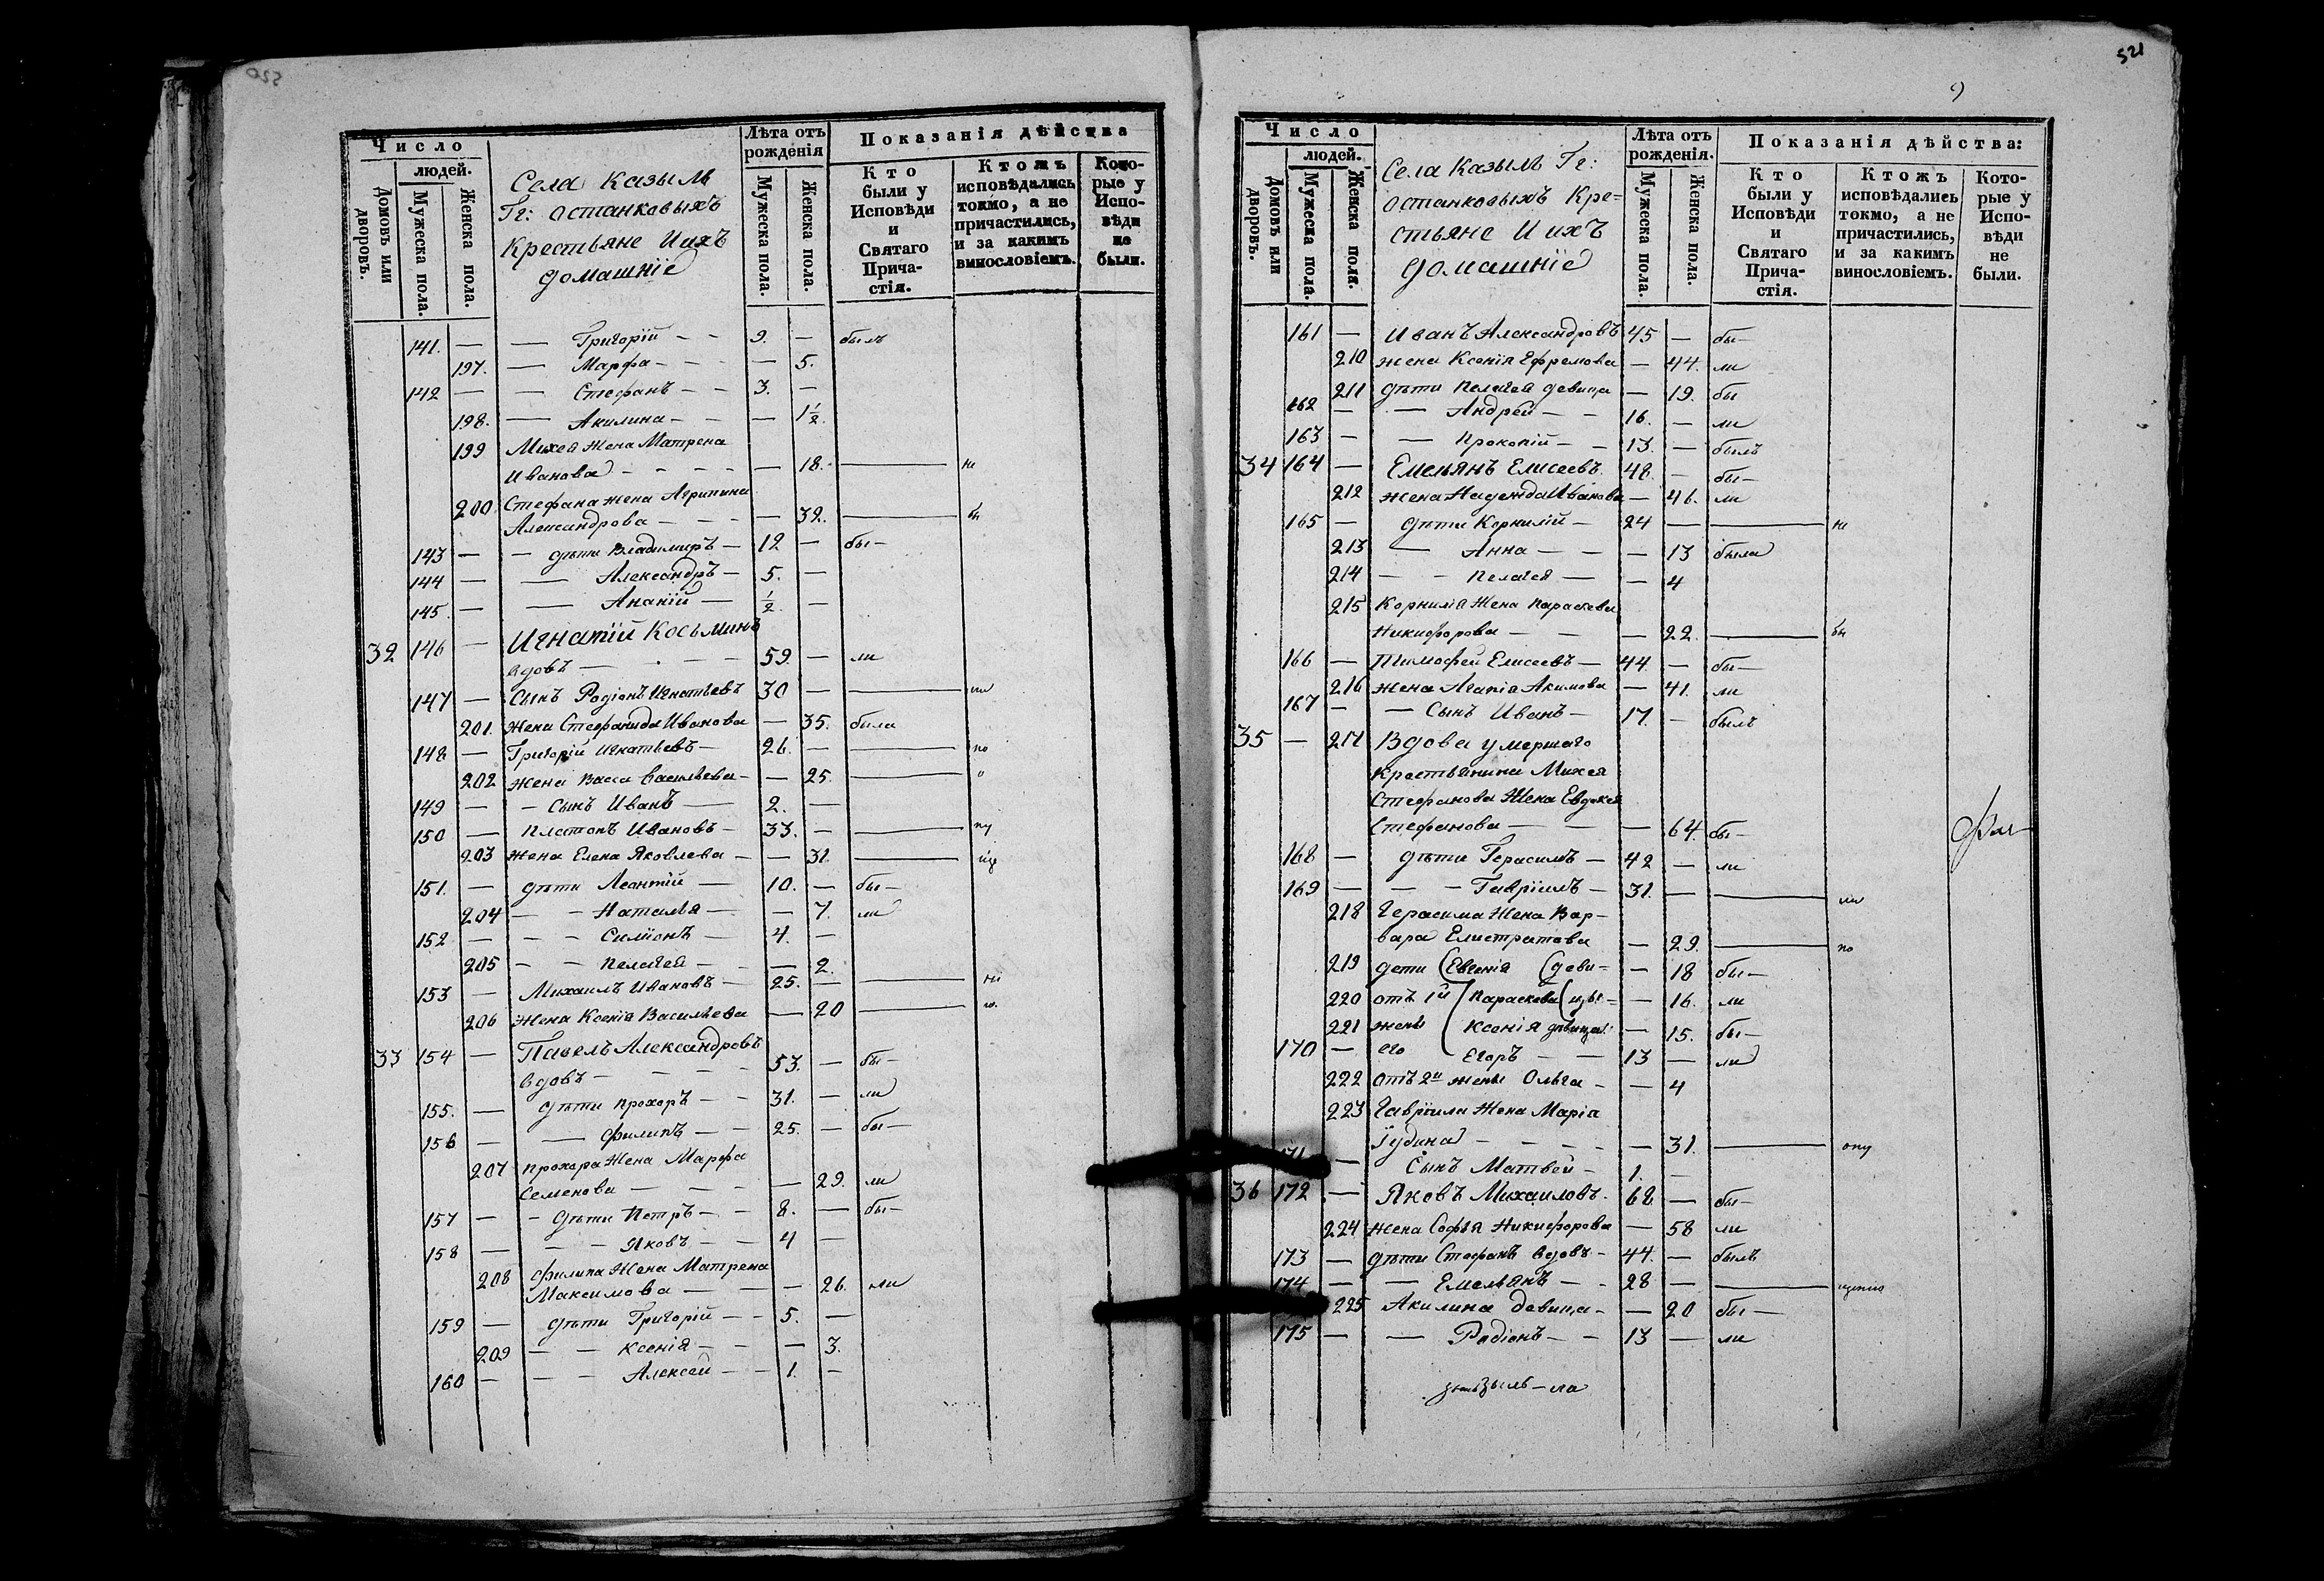 520
Число
людей.
Домовъ или дворовъ.
Мужеска пола.
Женска пола.
Села Казыль
Гг: Останковыхъ
Крестьяне и ихъ
домашніе
Лѣта отъ рожденія
Мужеска пола.
Женска пола.
Показанія дѣйства
Кто были у Исповѣди и Святаго Причастія.
Ктожъ исповѣдались токмо, а не причастились, и за какимъ винословіемъ.
Которые у Исповѣди не были.
141. — — Григорій — — 9. — былъ
197. — Марфа — — — 5.
142 — — Стефанъ — — 3. —
198. — Акилина — — — 1½.
199 Михея жена Матрена
Иванова — — — — 18. — не
200 Стефана жена Агрипина
Александрова — — — — 32. — бы
143 — — дѣти Владимиръ — 12 — бы—
144 — — Александръ — 5. —
145. — — Ананій — ½. —
32 146 — Игнатій Косьминъ
вдовъ — — — 59. — ли
147 — Сынъ Родіонъ Игнатьевъ 30 — — ли
201. жена Стефанида Иванова — 35. была
148 — Григорій Игнатьевъ — 26. — — по
202 жена Васса Васильева — — 25. —
149 — — Сынъ Иванъ — 2. —
150 — Платонъ Ивановъ — 33. — —
203 жена Елена Яковлева — — 31. —
151. — дѣти Леонтій — 10. — бы—
204 — — Наталья — — 7. ли
152 — — — Симіонъ — 4. —
205 — — Пелагея — — — 2.
153 — Михаилъ Ивановъ — 25. — —
206 жена Ксенія Васильева — 20 —
33 154 — Павелъ Александровъ
вдовъ — — — — 53. — бы—
155. — дѣти Прохоръ — — 31. — ли
156 — — Филипъ — — 25. — бы—
207 Прохора жена Марфа
Семенова — — — — 29. ли
157 — — дѣти Петръ — — 8. — бы—
158 — — — Яковъ — — 4 —
208 Филипа жена Матрена
Максимова — — — 26. ли
159 — дѣти Григорій — — 5. —
209 — — Ксенія — — — 3.
160 — — — Алексей — — 1. —
521
9
Число
людей.
Домовъ или дворовъ.
Мужеска пола.
Женска пола.
Села Казыль Гг:
Останковыхъ Кре=
стьяне и ихъ
домашніе
Лѣта отъ рожденія.
Мужеска пола.
Женска пола.
Показанія дѣйства:
Кто были у Исповѣди и Святаго Причастія.
Ктожъ исповѣдались токмо, а не причастились, и за какимъ винословіемъ.
Которые у Исповѣди не были.
161 — Иванъ Александровъ 45 — бы—
210 жена Ксенія Ефремова — 44. ли
211 дѣти Пелагея девица — 19. бы
162 — — Андрей — — 16. — ли
163 — — Прокопій — — 13. — былъ
34 164 — Емельянъ Елисеевъ. 48. — бы—
212 жена Надежда Иванова — 46. ли
165 — дѣти Корнилій — 24 — — не
213 — Анна — — — 13 была
214 — — Пелагея — — 4
215 Корнилія жена Параскева
Никифорова — — — 22. — бы
166 — Тимофей Елисеевъ — 44. — бы—
216 жена Агапія Акимова — 41. ли
167 — — Сынъ Иванъ — 17. — былъ
35 — 217 Вдова умершаго
Крестьянина Михея
Стефанова жена Евдокея
Стефанова — — — 64. бы—
168 — дѣти Герасимъ — 42 — ли
169 — — — Гавріилъ — 31. — — ли
218 Герасима жена Вар—
вара Елистратова — 29. — по
219 дети (Евгенія (деви= — 18 бы—
220 отъ 1й Параскева (цы — — 16. ли
221 жены Ксенія дѣвица: — 15. бы—
170 — его Егоръ — — 13 — ли
222 отъ 2й жены Ольга — — 4
223 Гавріила жена Марія
Іудина — — — — — 31. —
171 — Сынъ Матвей — 1. —
36 172 — Яковъ Михаиловъ. 68 — бы—
224 жена Софья Никифорова — 58 ли
173 — дѣти Стефанъ вдовъ — 44. — былъ
174 — — Емельянъ — — 28 — —
225 Акилина девица — — 20 бы—
175 — — Родіонъ — — 13 — ли